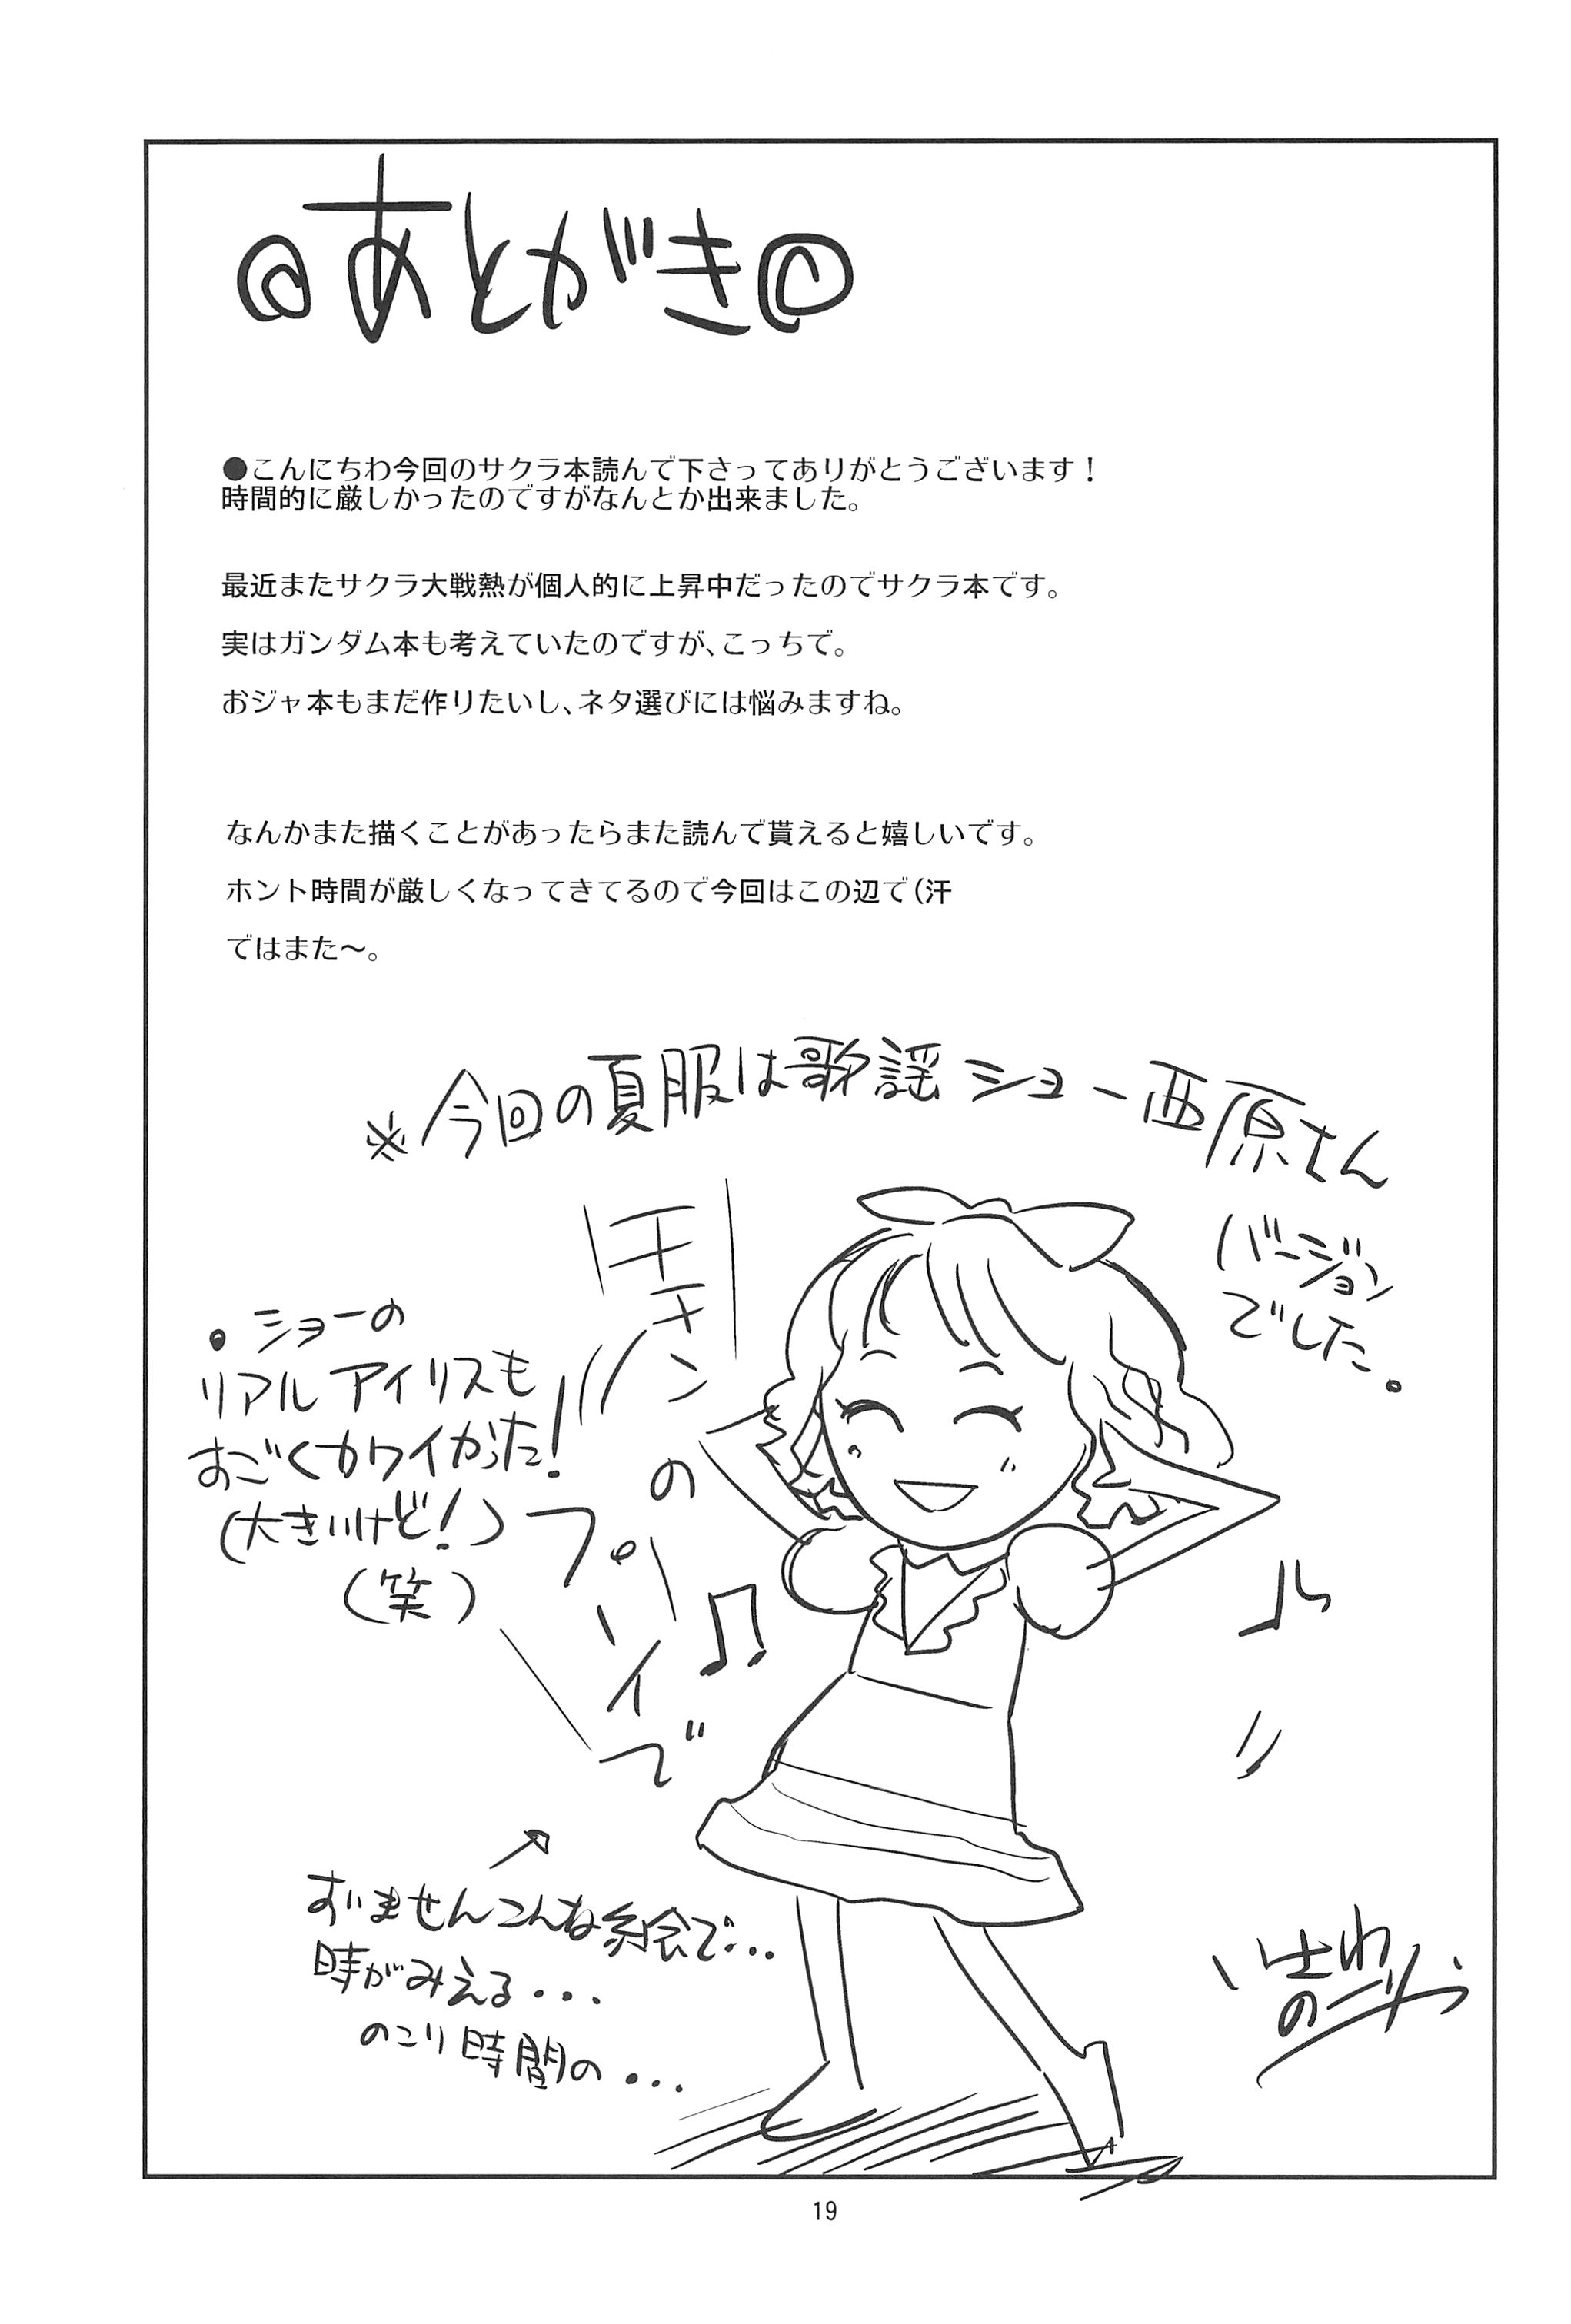 @あとがき@
●こんにちわ今回のサクラ本読んで下さってありがとうございます！
時間的に厳しかったのですがなんとか出来ました。
最近またサクラ大戦熱が個人的に上昇中だったのでサクラ本です。
実はガンダム本も考えていたのですが、こっちで。
おジャ本もまだ作りたいし、ネタ選びには悩みますね。
なんかまた描くことがあったらまた読んで貰えると嬉しいです。
ホント時間が厳しくなってきてるので今回はこの辺で（汗
ではまた〜。
※今回の夏服は歌謡ショー西原さん
バージョン
でした。
チキン
の
プ
イ
で
・ショーの
リアルアイリスも
すごくカワイかった！
（大きいけど！）
（笑）
すいませんこんな絵で・・・
時がみえる・・・
のこり時間の・・・
いさわ
のーり
19